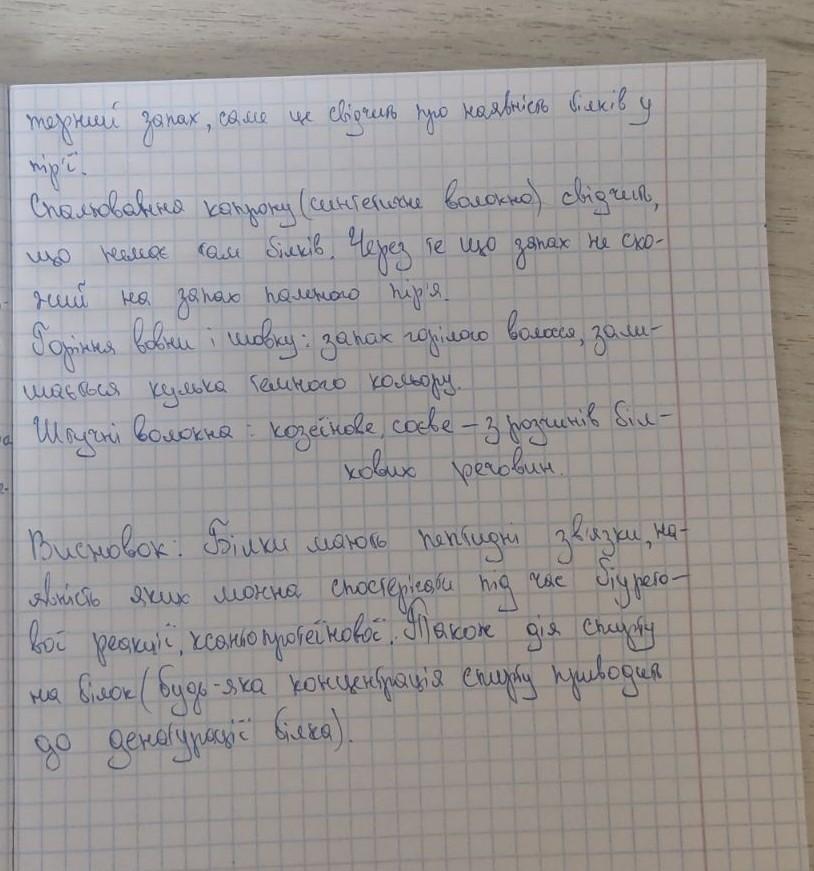 терний запах, саме це свідчить про наявність білків у
пір'ї.
Спалювання капрону (синтетичне волокно) свідчить,
що немає там білків. Через те що запах не схо-
жий на запах паленого пір'я.
Горіння вовни і шовку: запах горілого волосся, зали-
шається кулька темного кольору.
Штучні волокна: козеїнове, соєве – з розчинів біл-
кових речовин.
Висновок: Білки мають пептидні зв'язки, на-
явність яких можна спостерігати під час біурето-
вої реакції, ксантопротеїнової. Також дія спирту
на білок (будь-яка концентрація спирту приводить
до денатурації білка).